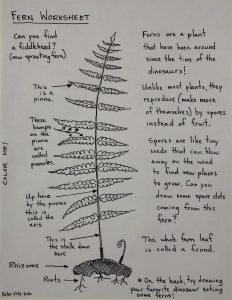 FERN WORKSHEET
Can you find
a fiddlehead?
(new sprouting fern)
This
is a
pinna.
These
bumps
on the
pinna
are
called
pinnules.
Up here
by the pinnas
this is
called the
axis
This is
the stalk down
here
Rhizome
Roots
COLOR ME!
Ferns are a plant
that have been around
since the time of the
dinosaurs!
Unlike most plants, they
reproduce (make more
of themselves) by spores
instead of fruit.
Spores are like tiny
seeds that can blow
away on the wind
to find new places
to grow. Can you
draw some spore dots
coming from this
fern?
The whole fern leaf
is called a frond.
* On the back, try drawing
your favorite dinosaur eating
some ferns!
2020